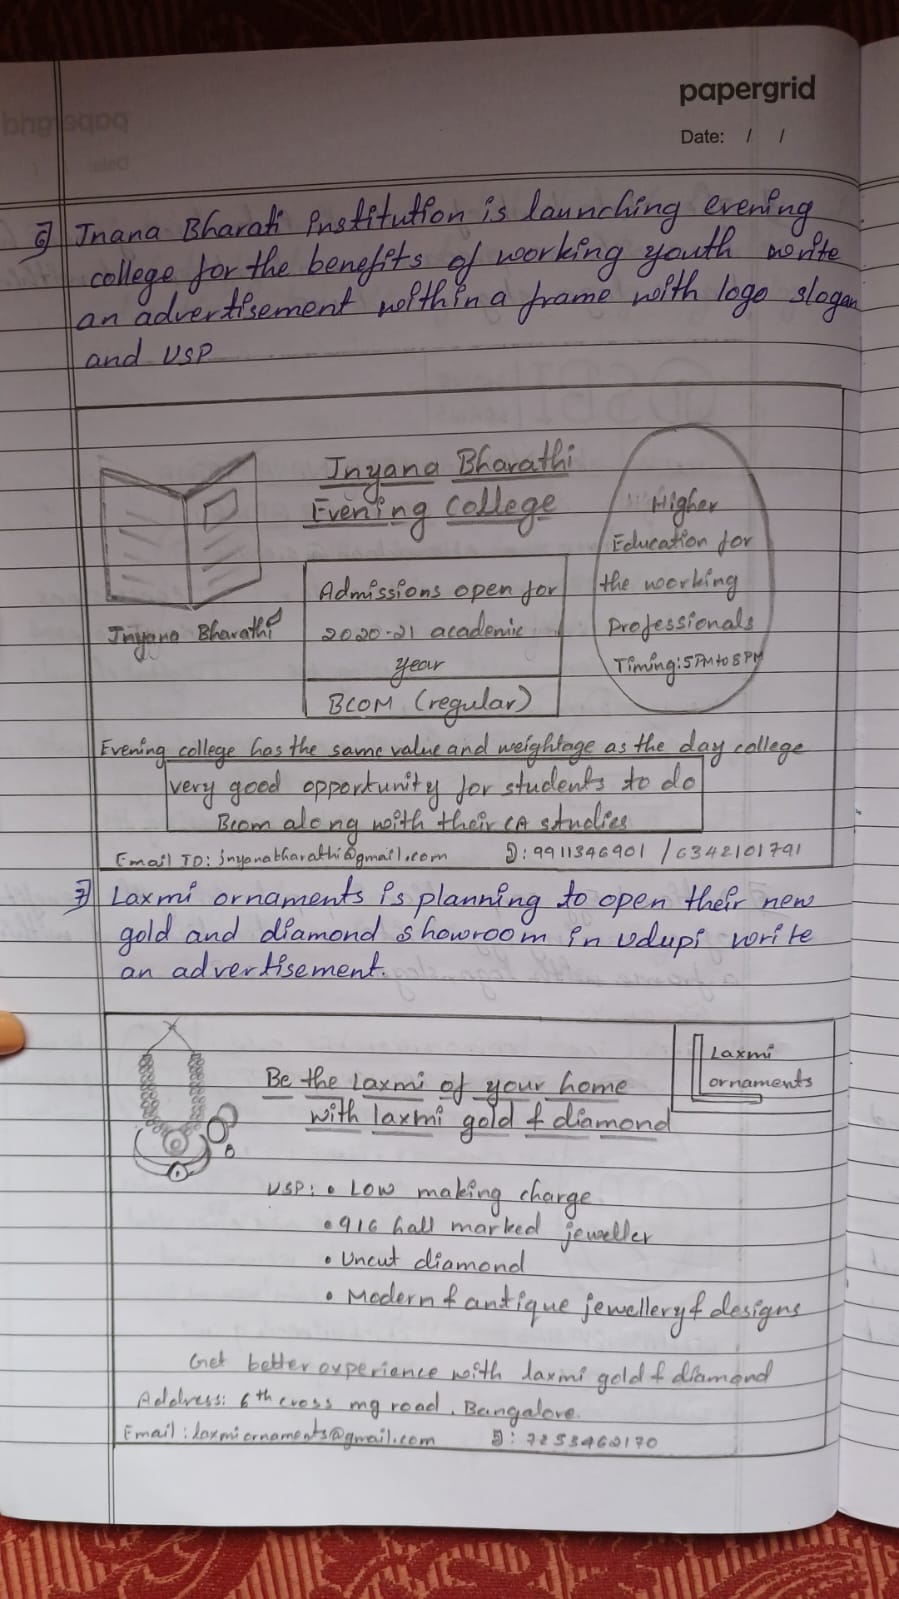 papergrid
Date: / /
6) Jnana Bharati Institution is launching evening
college for the benefits of working youth write
an advertisement within a frame with logo slogan
and USP
Jnyana Bharathi
Evening College
Jnyana Bharathi
Admissions open for
2020-21 academic
year
BCOM (regular)
Higher
Education for
the working
Professionals
Timing: 5PM to 8PM
Evening college has the same value and weightage as the day college
very good opportunity for students to do
Bcom along with their CA studies
Email ID: jnyanabharathi@gmail.com : 9911346901 / 6342101791
7) Laxmi ornaments is planning to open their new
gold and diamond showroom in Udupi write
an advertisement.
Laxmi
ornaments
Be the Laxmi of your home
with laxmi gold & diamond
USP: • Low making charge
• 916 hall marked jeweller
• Uncut diamond
• Modern & antique jewellery & designs
Get better experience with laxmi gold & diamond
Address: 6th cross mg road, Bangalore.
Email: laxmiornaments@gmail.com : 7253462170